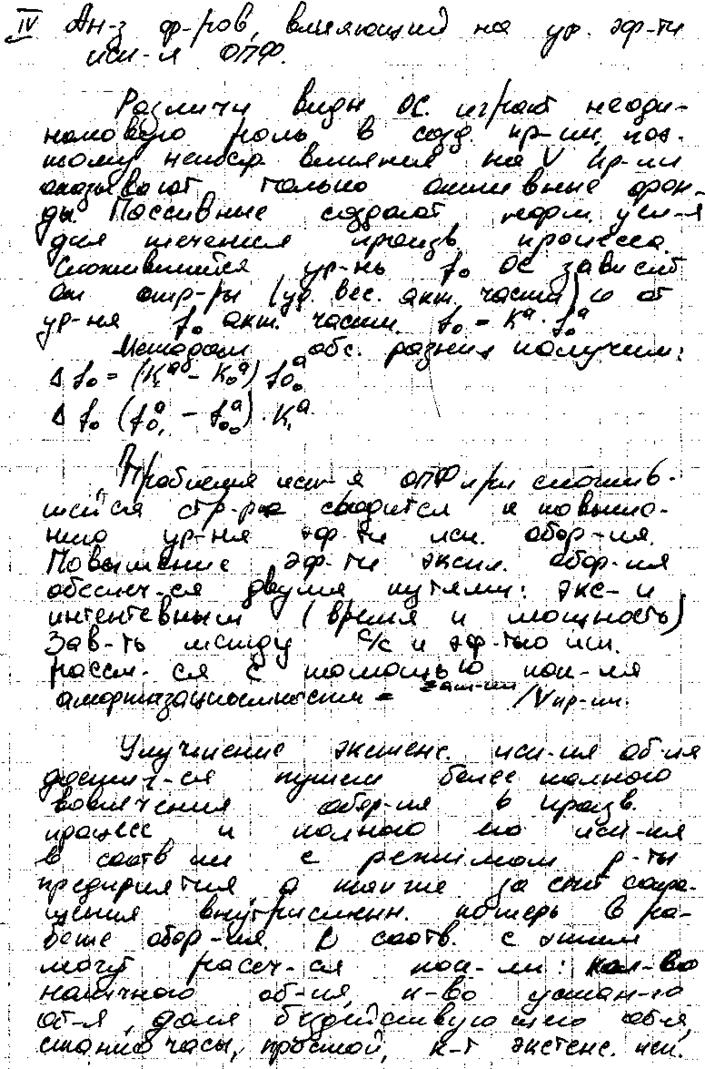 IV Ан-з ф-ров, влияющий на ур. эф-ти
исп-я ОПФ.
Различн виды ОС играют неоди-
наковую роль в созд. пр-ии, поэ-
тому непоср. влияния на V пр-ии
оказывают только активные фон-
ды. Пассивные создают норм. усл-я
для течения произв. процесса.
Сложившийся ур-нь fо ОС зависит
от стр-ры (уд. вес. акт. части) и от
ур-ня fо акт. части. fо = Kᵃ · fоᵃ
Методом абс. разниц получим:
Δ fо = (K₁ᵃ - K₀ᵃ) fо₀ᵃ
Δ fо (fо₁ᵃ - fо₀ᵃ) · K₁ᵃ
Проблема исп-я ОПФ при сложив-
шейся стр-ре сводится к повыше-
нию ур-ня эф-ти исп. обор-ия.
Повышение эф-ти экспл. обор-ия
обеспеч-ся двумя путями: экс- и
интентевным (время и мощность)
Зав-ть между с/с и эф-тью исп.
рассм-ся с помощью пок-ля
амортизационностим = Σам-ии /Vпр-ии.
Улучшение экстенс. исп-ия об-ия
достиг-ся путем более полного
вовлечения обор-ия в произв.
процесс и полного его исп-ия
в соотв ии с режимом р-ты
предприятия а также за счет сокра-
щения внутрисменн. потерь в ра-
боте обор-ия. В соотв. с этим
могут рассч-ся пок-ли: кол-во
наличного об-ия, к-во устан-го
об-я, доля бездействующего об-я,
станко часы, простой, к-т экстенс. исп.